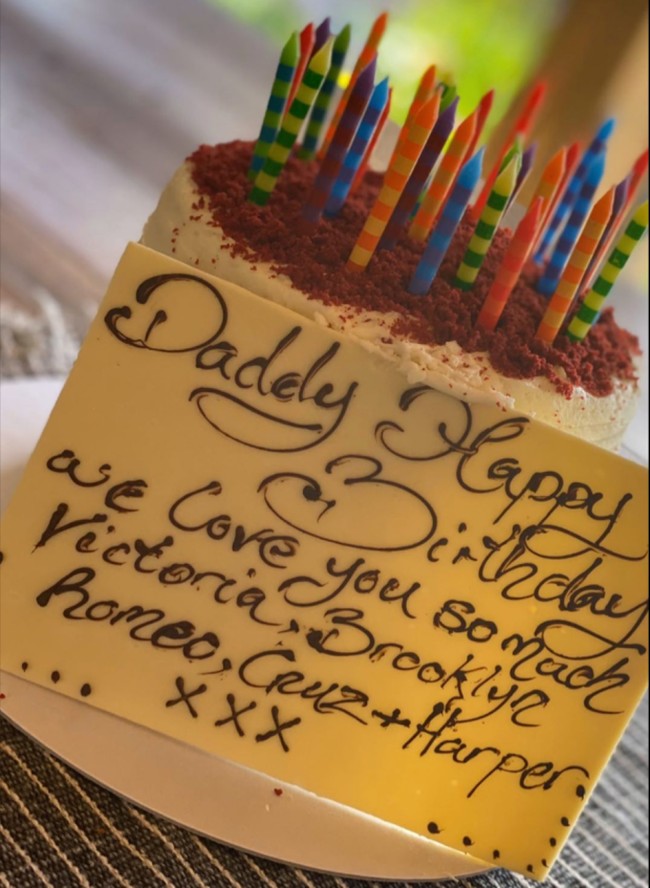 Daddy Happy
Birthday
we love you so mach
Victoria, Brooklyn
Romeo, Cruz + Harper.
xxx